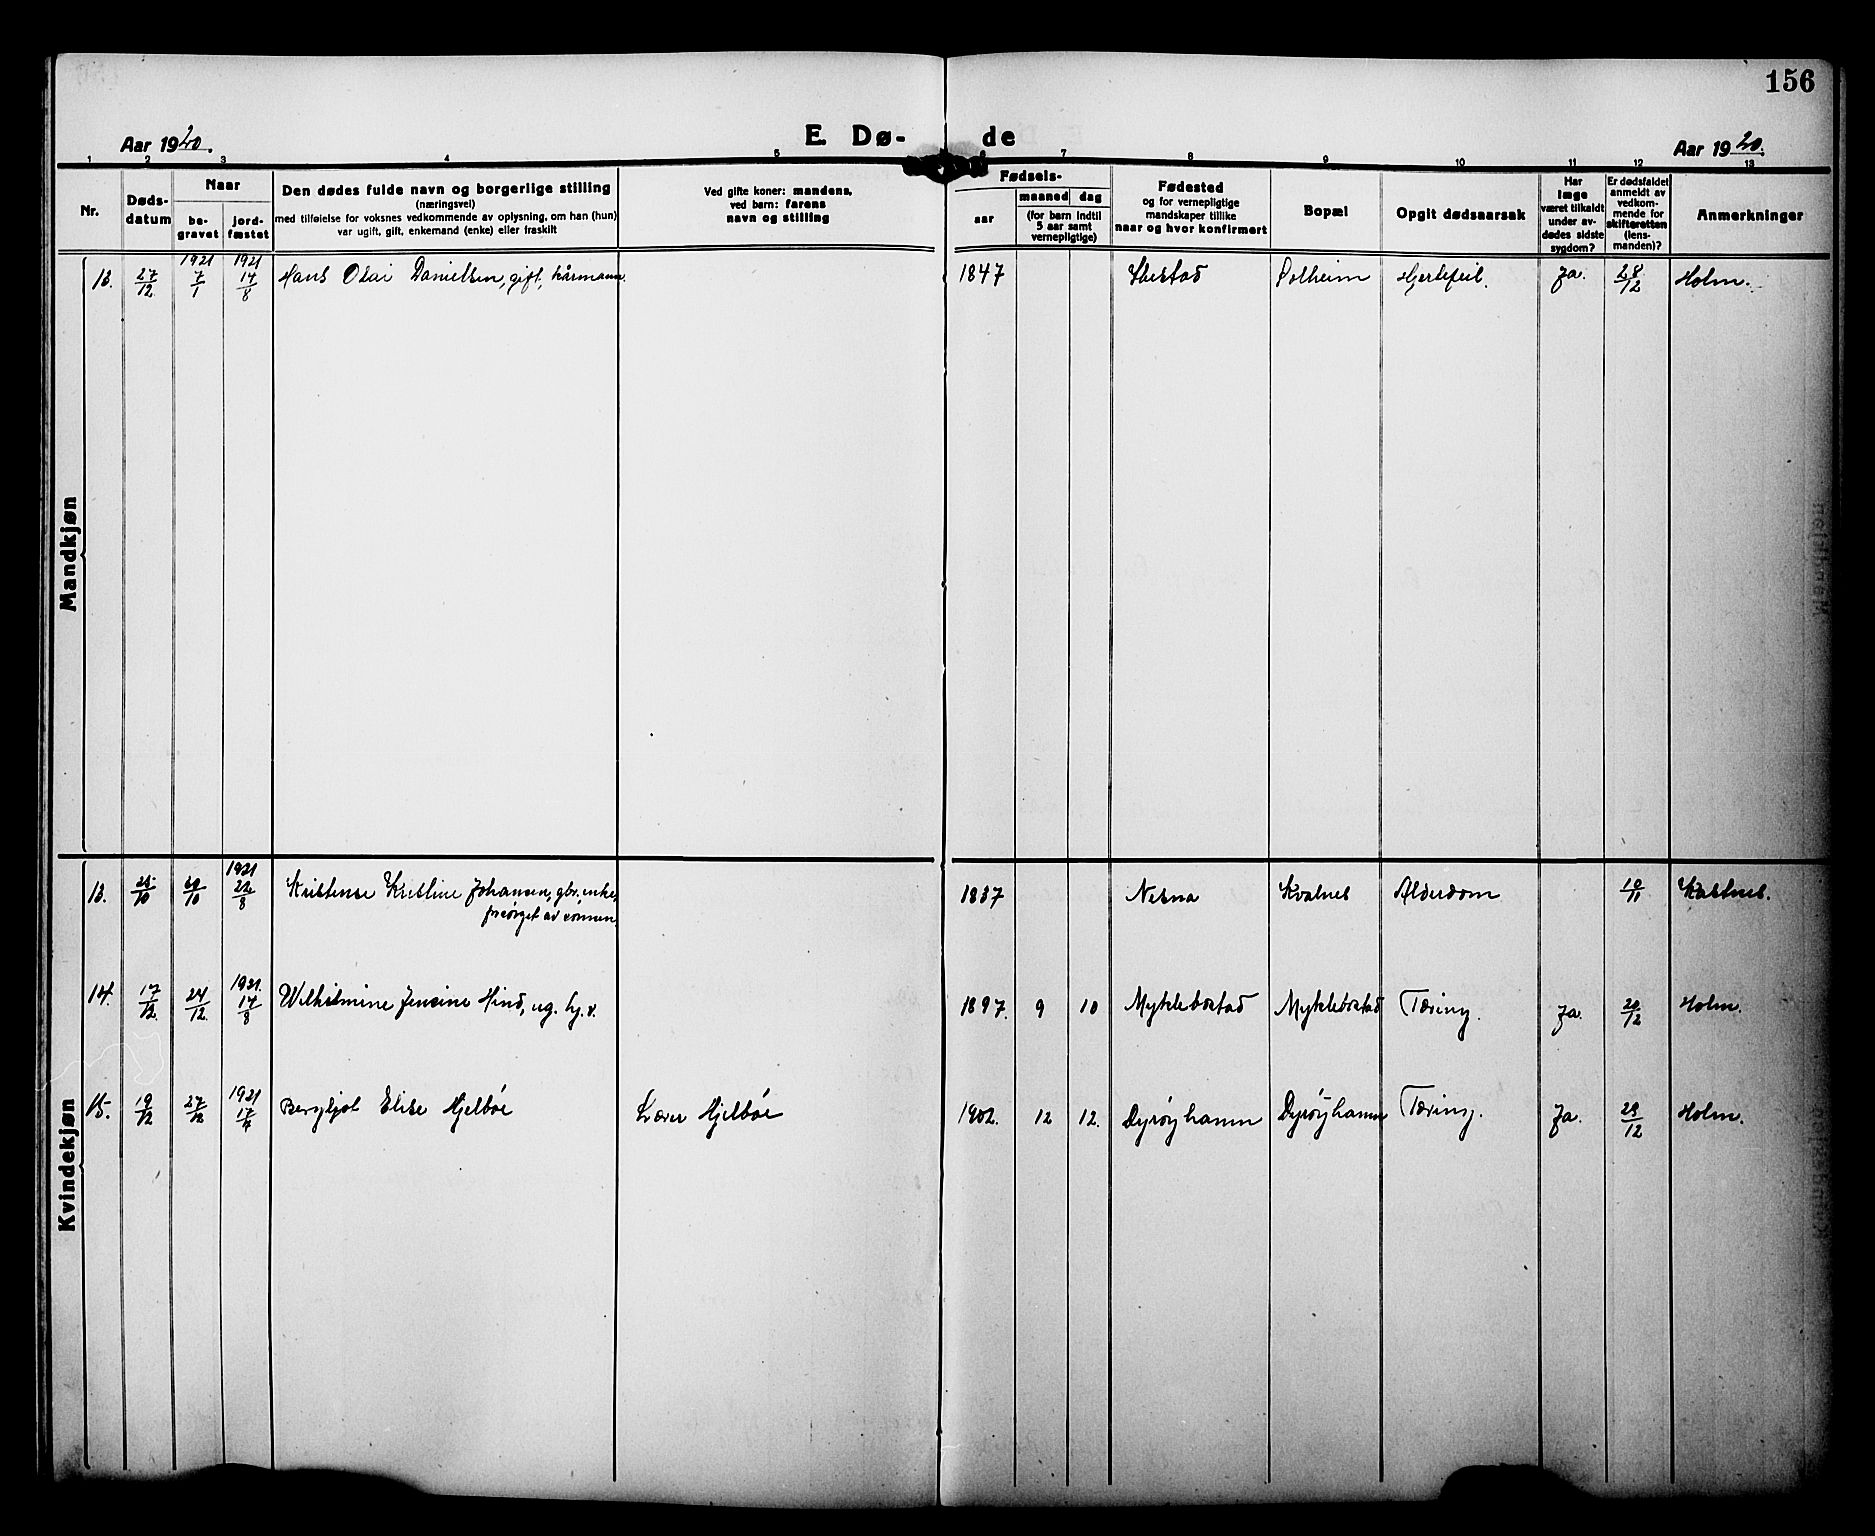 156
Aar 1920.
E. Dø-
de
Aar 1920.
1 2 3 4 5 6 7 8 9 10 11 12 13
Nr.
Døds-
datum
Naar
be-
gravet
jord-
fæstet
Den dødes fulde navn og borgerlige stilling
(næringsvei)
med tilføielse for voksnes vedkommende av oplysning, om han (hun)
var ugift, gift, enkemand (enke) eller fraskilt
Ved gifte koner: mandens,
ved barn: farens
navn og stilling
Fødsels-
aar
maaned dag
(for barn indtil
5 aar samt
vernepligtige)
Fødested
og for vernepligtige
mandskaper tillike
naar og hvor konfirmert
Bopæl
Opgit dødsaarsak
Har
læge
været tilkaldt
under av-
dødes sidste
sygdom?
Er dødsfaldet
anmeldt av
vedkom-
mende for
skifteretten
(lens-
manden)?
Anmerkninger
Mandkjøn
1921 1921
13. 27/12 7/1 14/8 Hans Osai Danielsen, gift, kårmann. 1847 Ibestad Solheim Hjertefeil. Ja. 28/12 Holm.
Kvindekjøn
1921
13. 25/10 29/10 22/8 Kristense Kristine Johansen, gbr. enke, 1837 Nesna Kvalnes Alderdom 10/11 Kastnes.
forsørget av sønnen.
1921.
14. 17/12. 24/12. 14/8 Wilhelmine Jensine Hind, ug. hj. v. 1897. 9 10 Myklebostad Myklebostad Tæring. Ja. 20/12 Holm.
1921
15. 19/12 27/12 17/4 Bergljot Elise Hjelbøe Lærer Hjelbøe 1902. 12 12. Dyrøyhamn Dyrøyhamn Tæring. Ja. 23/12 Holm.